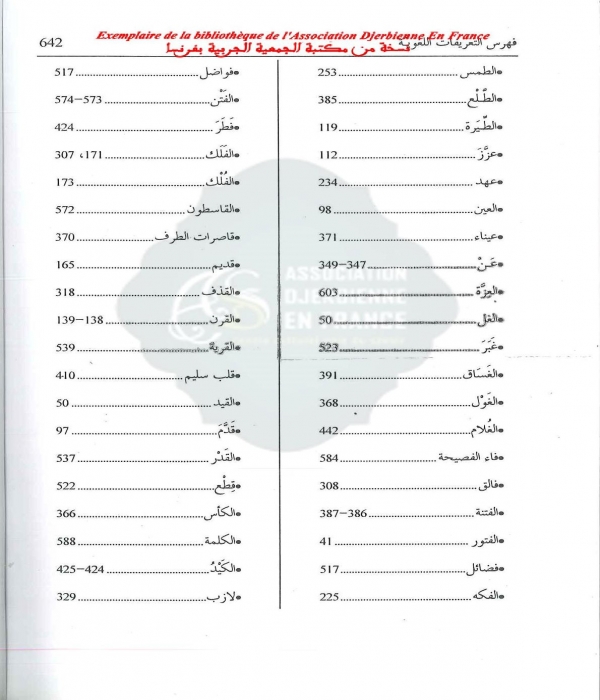 Exemplaire de la bibliothèque de l'Association Djerbienne En France
نسخة من مكتبة الجمعية الجربية بفرنسا
فهرس التعريفات اللغوية
642
•الطمس..........253
•الطّلْع..........385
•الطّيَرة..........119
•عزّزَ..........112
•عهد..........234
•العين..........98
•عيناء..........371
•عَنْ..........347-349
•العِزَّة..........603
•الغل..........50
•غَبَرَ..........523
•الغَسَاق..........391
•الغَوْل..........368
•الغُلام..........442
•فاء الفصيحة..........584
•فالق..........308
•الفتنة..........386-387
•الفتور..........41
•فضائل..........517
•الفكه..........225
•فواضل..........517
•الفَتْن..........573-574
•فَطَرَ..........424
•الفَلَك..........171، 307
•الفُلْك..........173
•القاسطون..........572
•قاصرات الطرف..........370
•قديم..........165
•القذف..........318
•القرن..........138-139
•القرية..........539
•قلب سليم..........410
•القيد..........50
•قدَّمَ..........97
•القَدْر..........537
•قِطْع..........522
•الكأس..........366
•الكلمة..........588
•الكَيْدُ..........424-425
•لازب..........329
ASSOCIATION
DJERBIENNE
EN FRANCE